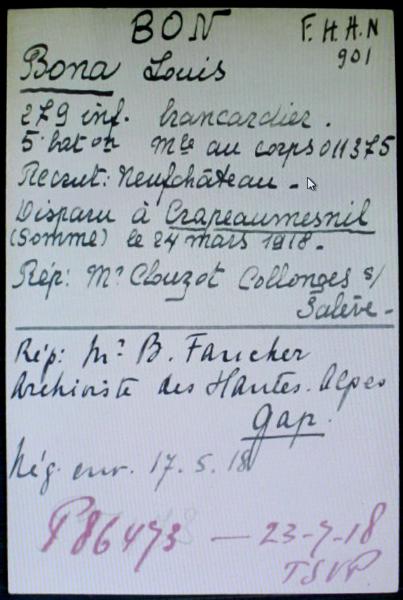 BON
F.H.H.N
901
Bona Louis
279 inf. brancardier.
5e bat on mle au corps 011375
Recrut: Neufchâteau -
Disparu à Crapeaumesnil
(Somme) le 24 mars 1918 -
Rép: Mr Clouzot Collonges s/
Salève -
Rép: Mr B. Faucher
Archiviste des Hautes. Alpes
Gap.
Nég. env. 17. 5. 18
P86473 — 23-7-18
TSVP.